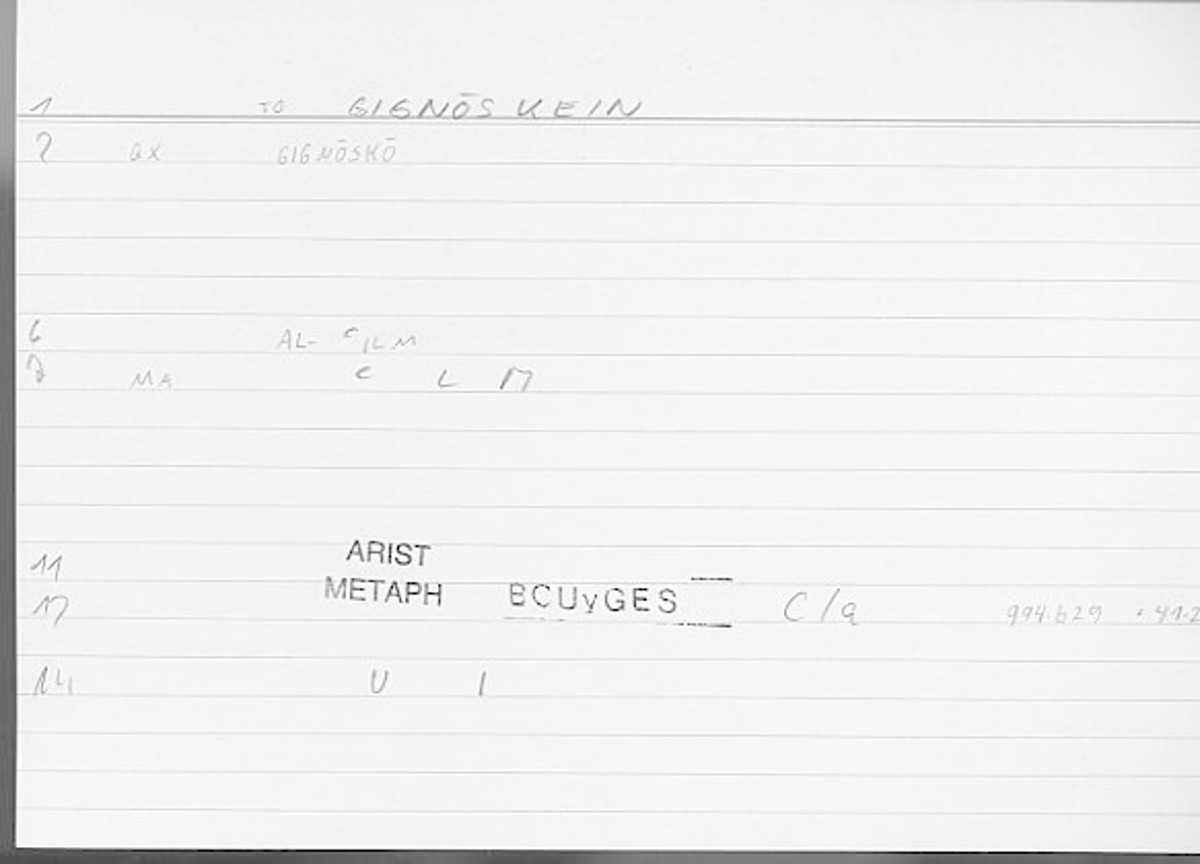 1 TO GIGNŌSKEIN
2 GX GIGNŌSKŌ
6 AL- ʿILM
7 MA ʿ L M
11 ARIST
12 METAPH BCUyGES C/a 994.b29 : 41.2
14 U I